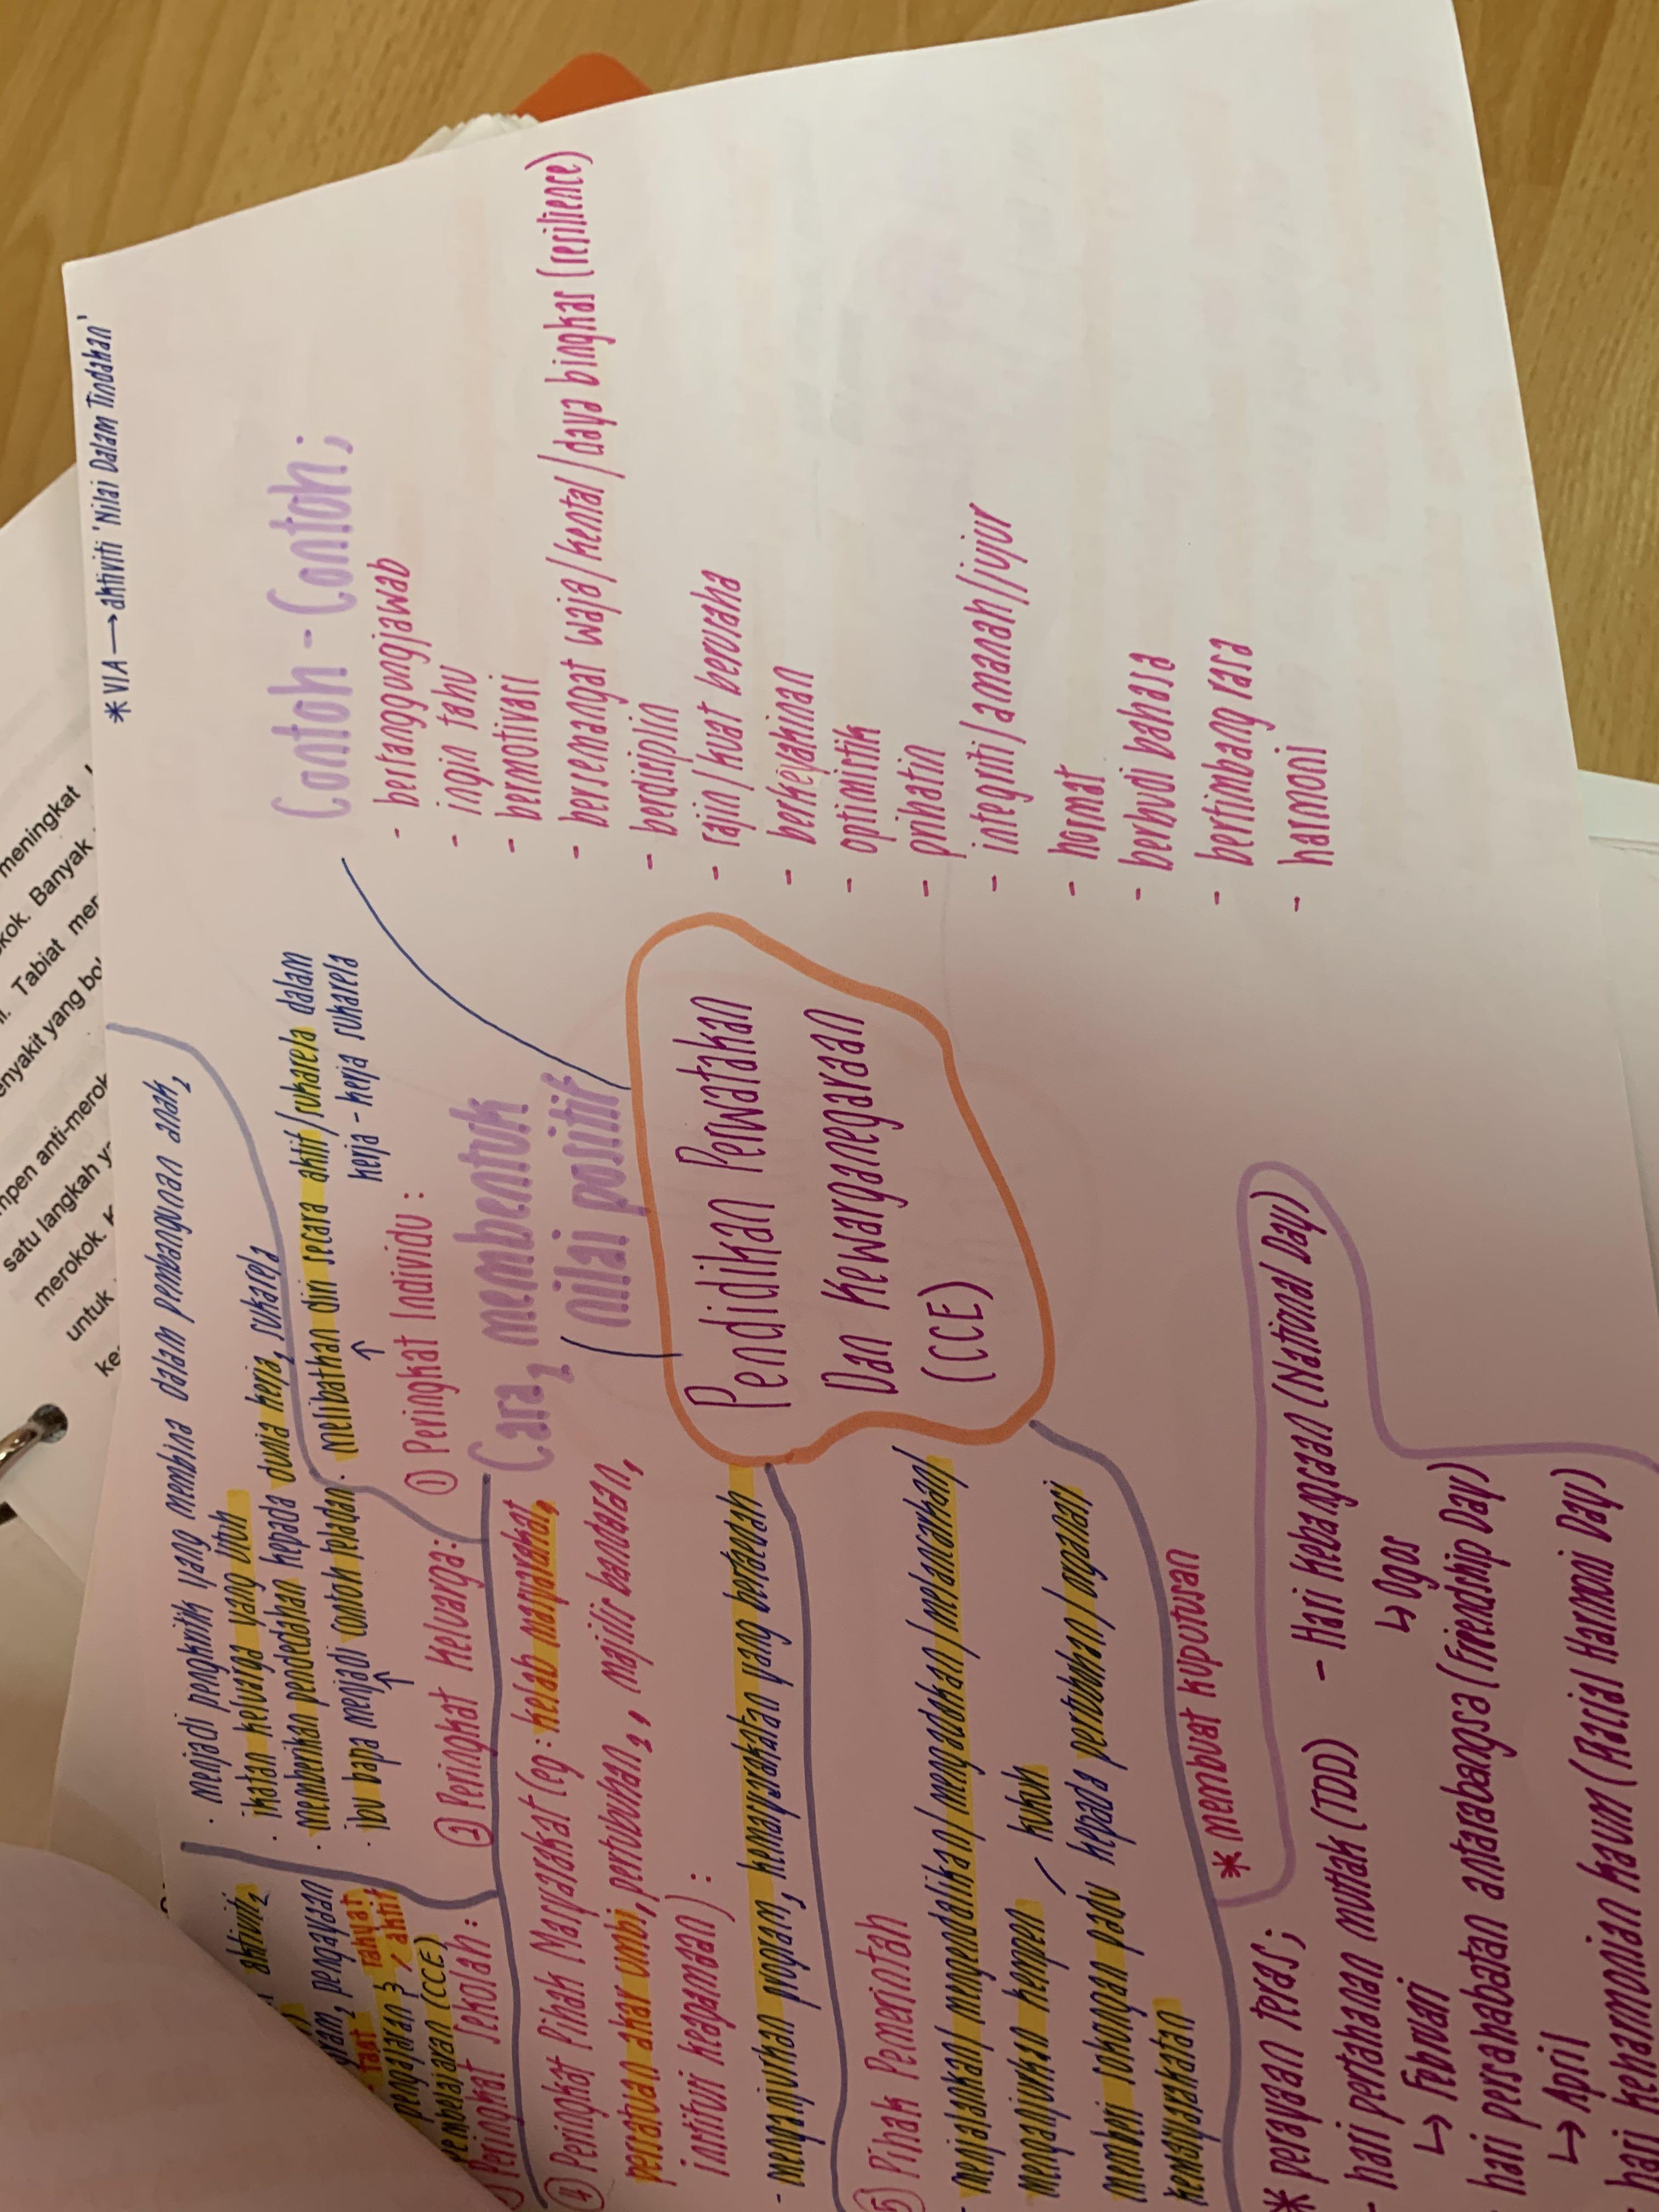 * VIA → aktiviti 'Nilai Dalam Tindakan'
Contoh - Contoh;
- bertanggungjawab
- ingin tahu
- bermotivasi
- bersemangat waja/kental/daya bingkas (resilience)
- berdisiplin
- rajin/kuat berusaha
- berkeyakinan
- optimistik
- prihatin
- integriti/amanah/jujur
- hormat
- berbudi bahasa
- bertimbang rasa
- harmoni
Pendidikan Perwatakan
Dan Kewarganegaraan
(CCE)
Cara₂ membentuk
nilai positif
① Peringkat Individu:
· melibatkan diri secara aktif/sukarela dalam
kerja - kerja sukarela
② Peringkat Keluarga:
· menjadi pengkritik yang membina dalam pembangunan anak₂
· ikatan keluarga yang utuh
· memberikan pendedahan kepada dunia kerja₂ sukarela
· ibu bapa menjadi contoh teladan
Peringkat Sekolah:
aktiviti₂
pengayaan
pengajaran &
aktif
pembelajaran (CCE)
④ Peringkat Pihak Masyarakat (eg: kelab masyarakat,
persatuan akar umbi, pertubuhan₂, majlis bandaran,
institusi keagamaan):
- menganjurkan program₂ kemasyarakatan yang berfaedah
⑤ Pihak Pemerintah
- menjalankan/mengendalikan/mengadakan/melancarkan/
menganjurkan kempen
kukuh
memberi sokongan padu kepada pertubuhan/organisasi
kemasyarakatan
* membuat kuputusan
* perayaan teras;
- hari pertahanan mutlak (TDD)
↳ Februari
hari persahabatan antarabangsa (Friendship Day)
↳ April
hari keharmonian kaum (Racial Harmoni Day)
- Hari Kebangsaan (National Day)
↳ Ogos
meningkat
kok. Banyak
Tabiat mer
enyakit yang bo
mpen anti-merok
satu langkah y
merokok. K
untuk